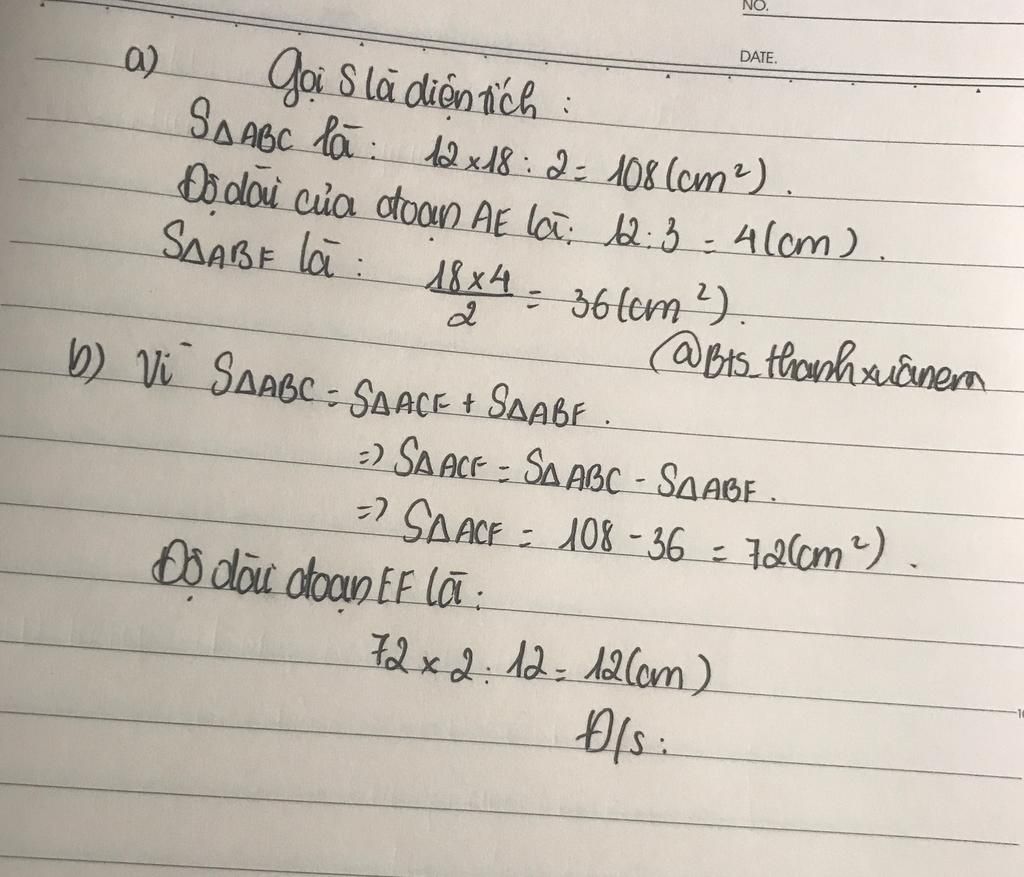 NO.
DATE.
a) Gọi S là diện tích :
SΔABC là : 12 x 18 : 2 = 108 (cm²).
Độ dài của đoạn AE là: 12 : 3 = 4 (cm).
SΔABF là : 18 x 4 / 2 = 36 (cm²).
@Bts_thanhxuânem
b) Vì SΔABC = SΔACF + SΔABF.
=> SΔACF = SΔABC - SΔABF.
=> SΔACF = 108 - 36 = 72 (cm²).
Độ dài đoạn EF là:
72 x 2 : 12 = 12 (cm)
Đ/s :